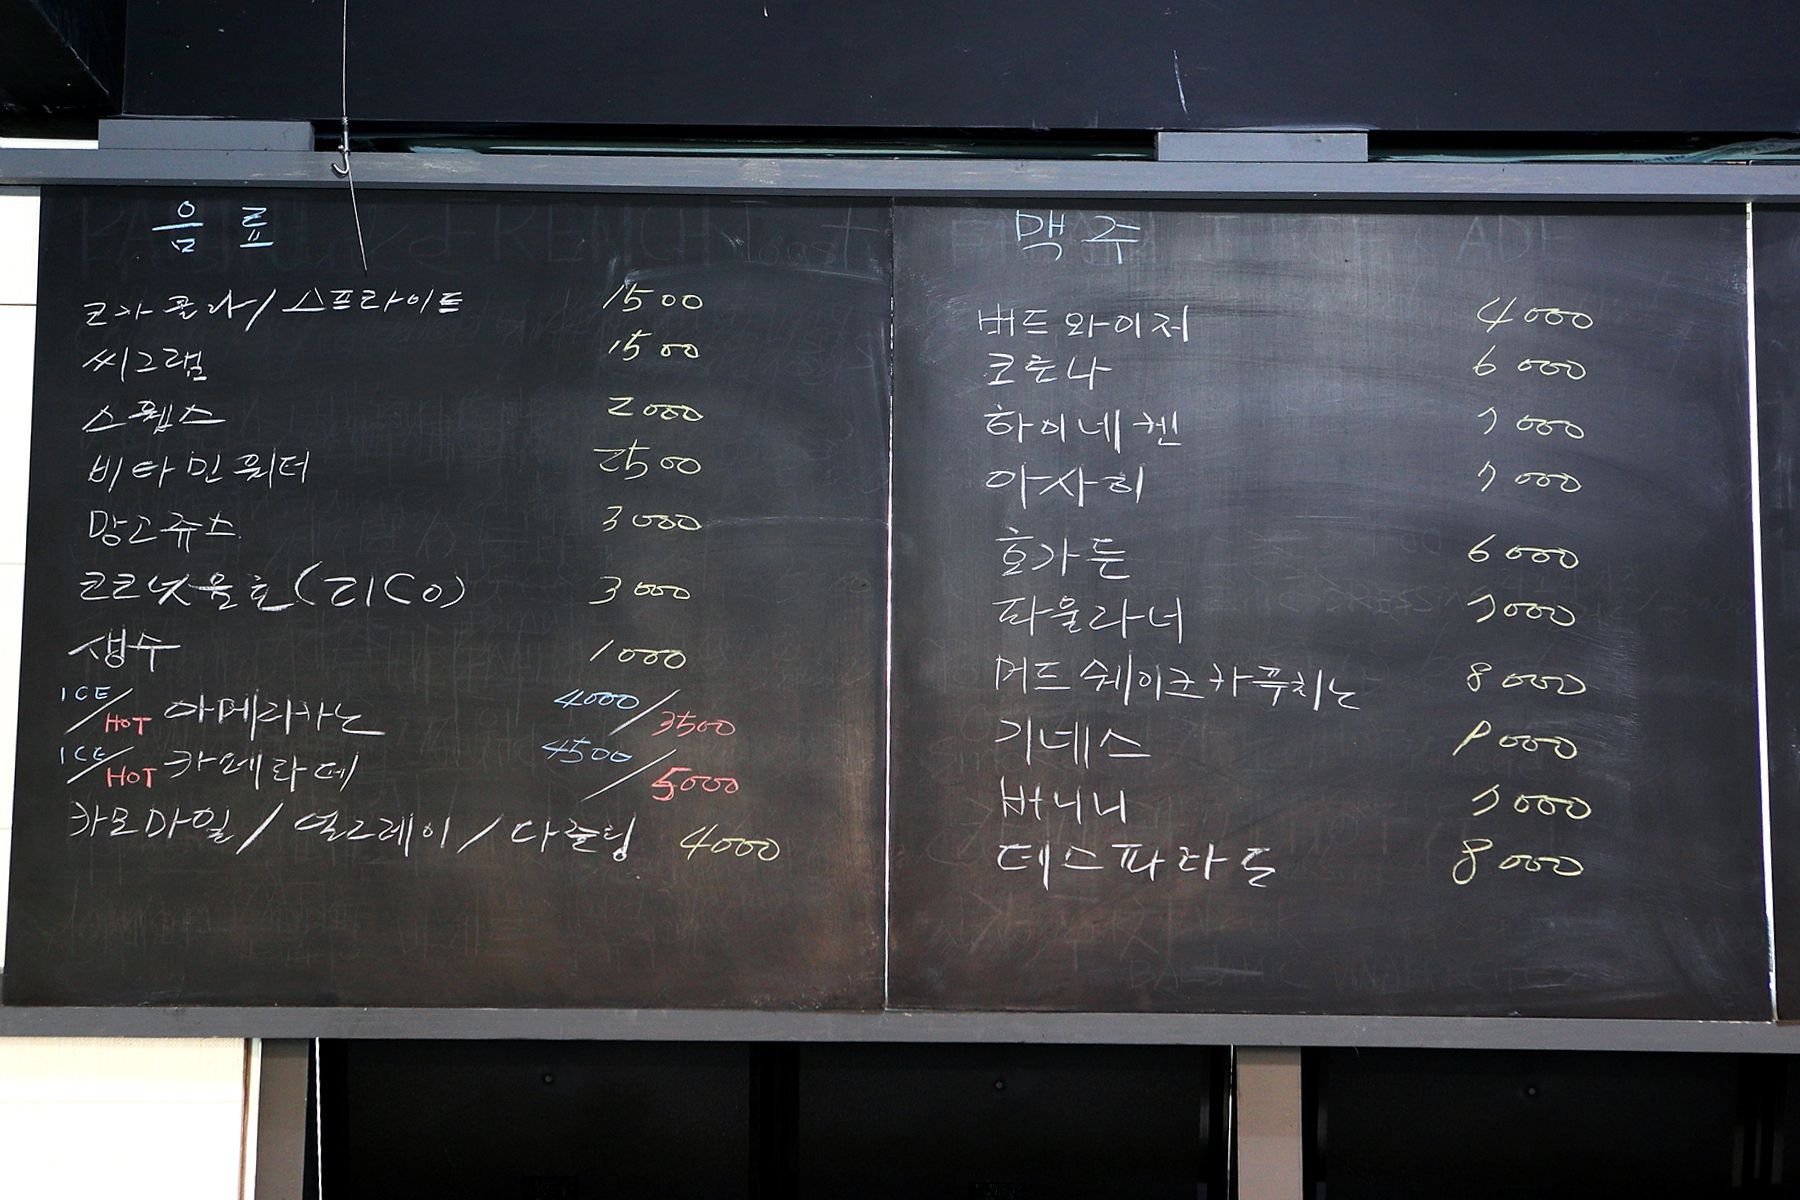 음료
코카콜라/스프라이트 1500
씨그램 1500
스웹스 2000
비타민워터 2500
망고쥬스 3000
코코넛울트(ZICO) 3000
생수 1000
ICE/HOT 아메리카노 4000/3500
ICE/HOT 카페라떼 4500/5000
카모마일/얼그레이/다즐링 4000
맥주
버드와이저 4000
코로나 6000
하이네켄 7000
아사히 7000
호가든 6000
파울라너 7000
머드쉐이크카푸치노 8000
기네스 8000
버니니 7000
데스파라도 8000